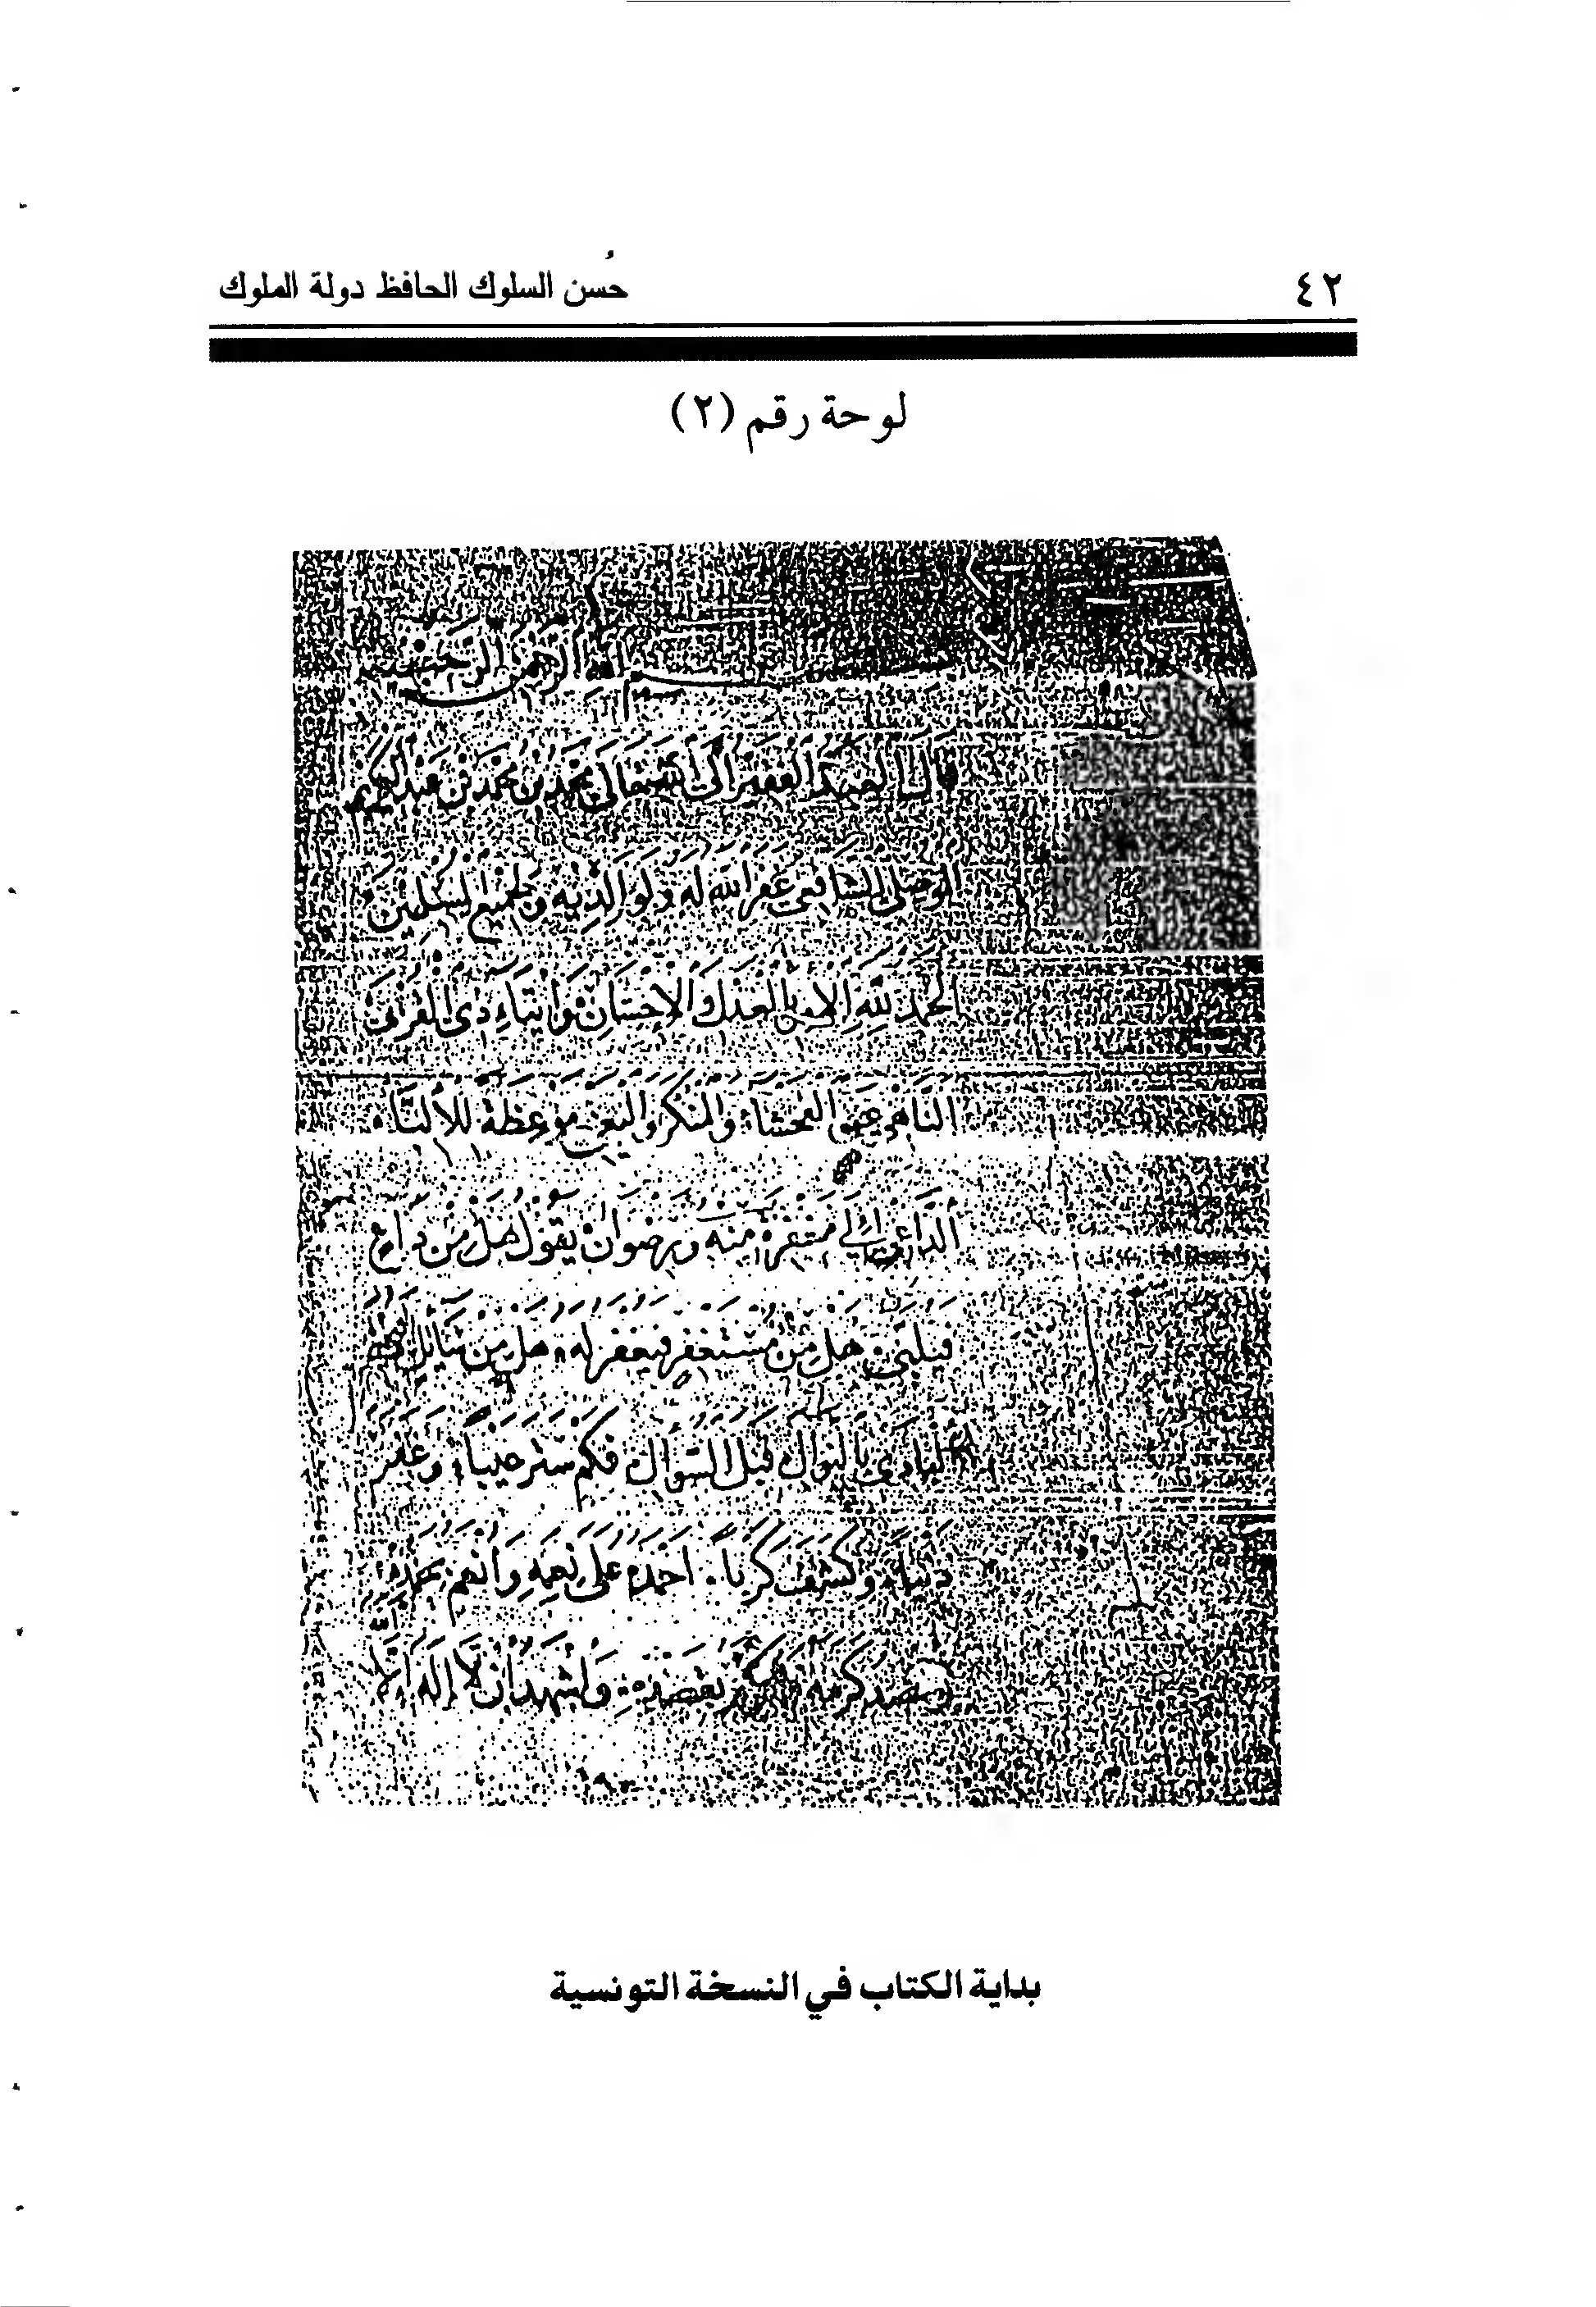 ٤٢
حُسن السلوك الحافظ دولة الملوك
لوحة رقم (٢)
بسم الله الرحمن الرحيم
قال العبد الفقير الى الله تعالى محمد بن محمد بن عبد الكريم
الموصلي الشافعي غفر الله له ولوالديه ولجميع المسلمين
الحمد لله الامر بالعدل والإحسان وايتاء ذى القربى
الناهي عن الفحشاء والمنكر والبغي موعظة للألباء
الداعي إلى مغفرة منه ورضوان يقول هل من داع
فيلبى هل من مستغفر فيغفر له هل من سائل
المنادى بالنوال قبل السؤال فكم ستر عيبا وغفر
ذنبا وكشف كربا احمده على نعمه وانعم بحمده
كرمه بقصده وأشهد ان لا إله إلا الله
بداية الكتاب في النسخة التونسية